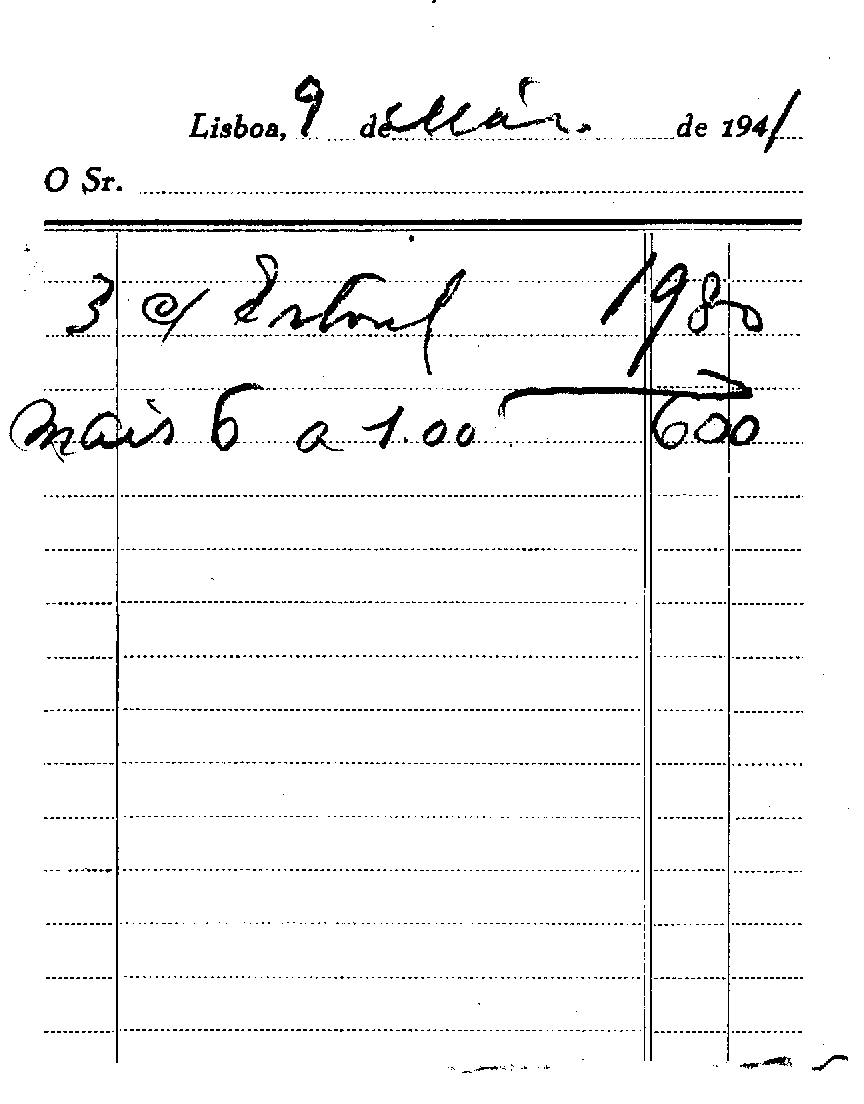 Lisboa, 9 de Mar. de 1941
O Sr.
3 c/ Estoril 1980
mais 6 a 1.00 600